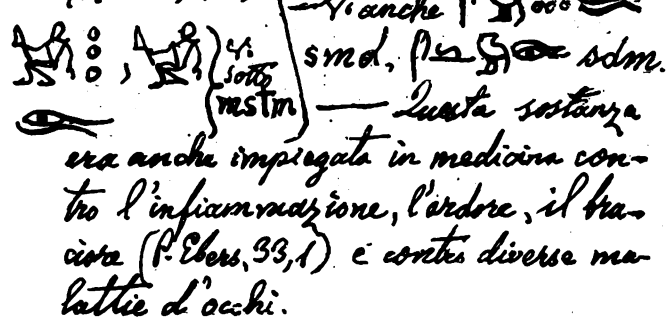 Vi anche
, vi
sotto smd, sdm.
mstm — Questa sostanza
era anche impiegata in medicina con-
tro l'infiammazione, l'ardore, il bru-
ciore (P. Ebers, 33, 1) e contro diverse ma-
lattie d'occhi.